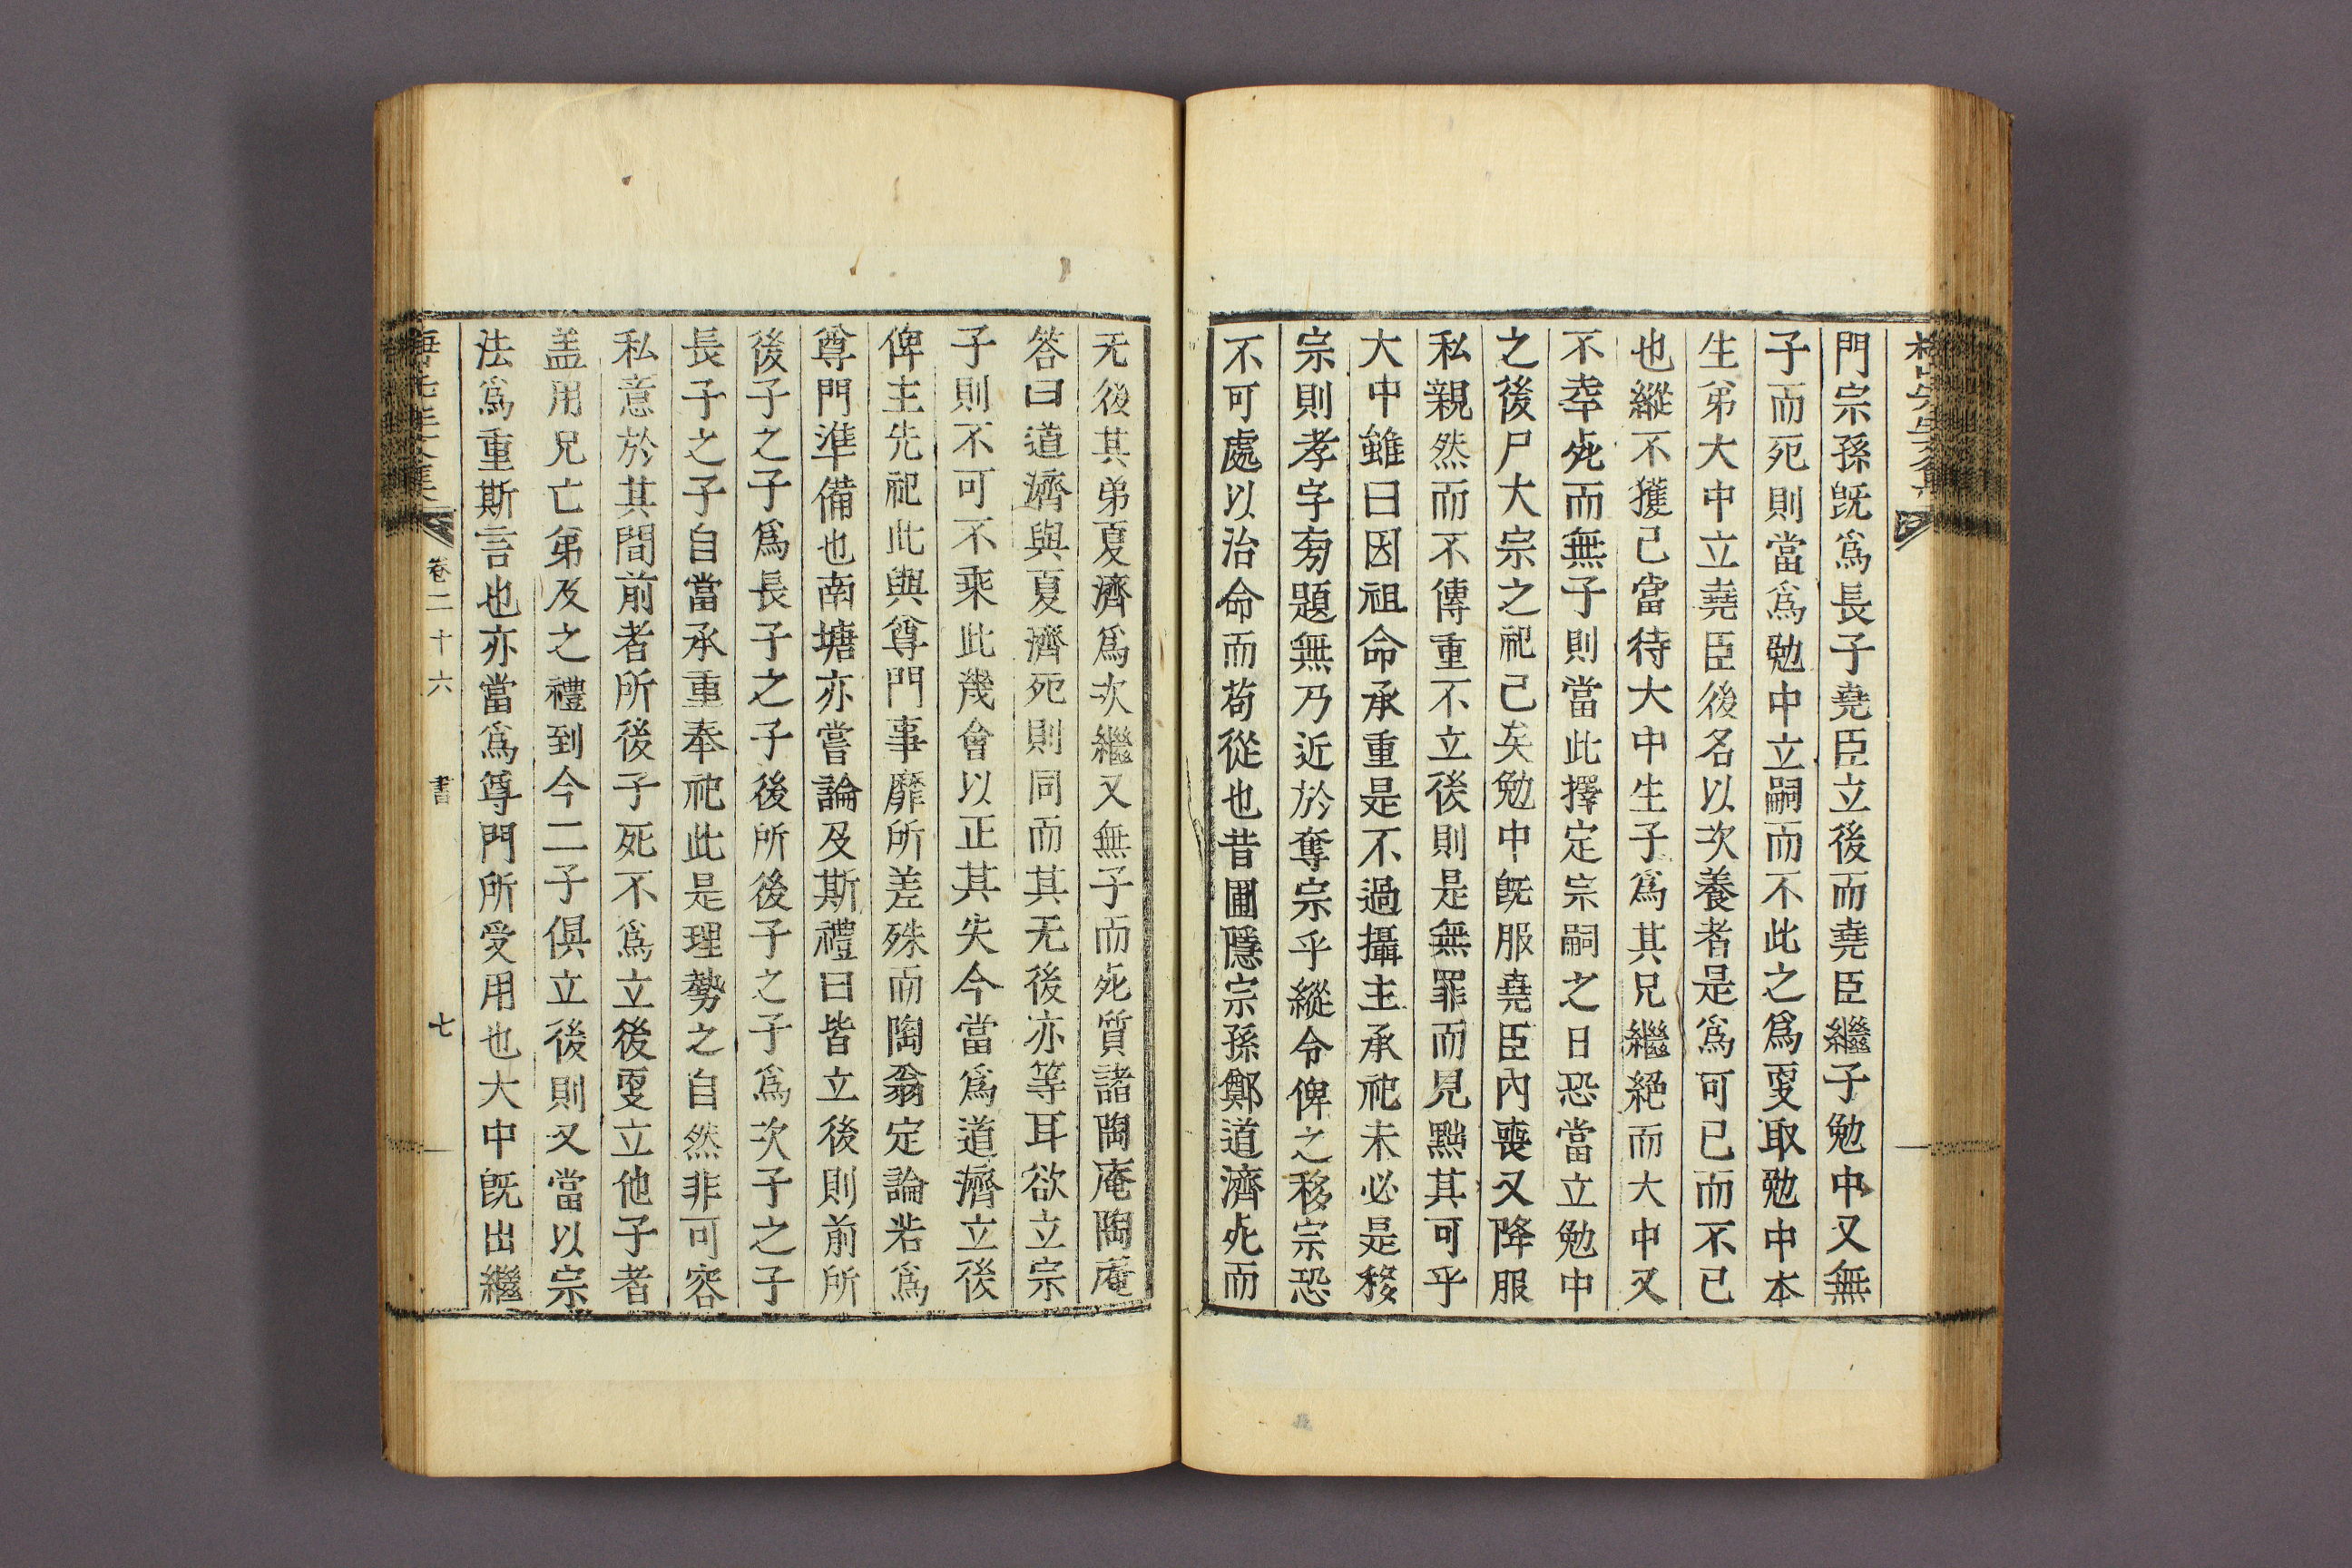 梅山先生文集
門宗孫旣爲長子堯臣立後而堯臣繼子勉中又無
子而死則當爲勉中立嗣而不此之爲更取勉中本
生弟大中立堯臣後名以次養者是爲可已而不已
也縱不獲已當待大中生子爲其兄繼絕而大中又
不幸死而無子則當此擇定宗嗣之日恐當立勉中
之後尸大宗之祀已矣勉中旣服堯臣內喪又降服
私親然而不傳重不立後則是無罪而見黜其可乎
大中雖曰因祖命承重是不過攝主承祀未必是移
宗則孝字旁題無乃近於奪宗乎縱令俾之移宗恐
不可處以治命而苟從也昔圃隱宗孫鄭道濟死而
无後其弟夏濟爲次繼又無子而死質諸陶庵陶庵
答曰道濟與夏濟死則同而其无後亦等耳欲立宗
子則不可不乘此幾會以正其失今當爲道濟立後
俾主先祀此與尊門事靡所差殊而陶翁定論若爲
尊門準備也南塘亦嘗論及斯禮曰皆立後則前所
後子之子爲長子之子後所後子之子爲次子之子
長子之子自當承重奉祀此是理勢之自然非可容
私意於其間前者所後子死不爲立後更立他子者
盖用兄亡弟及之禮到今二子俱立後則又當以宗
法爲重斯言也亦當爲尊門所受用也大中旣出繼
梅山先生文集 卷二十六 書 七